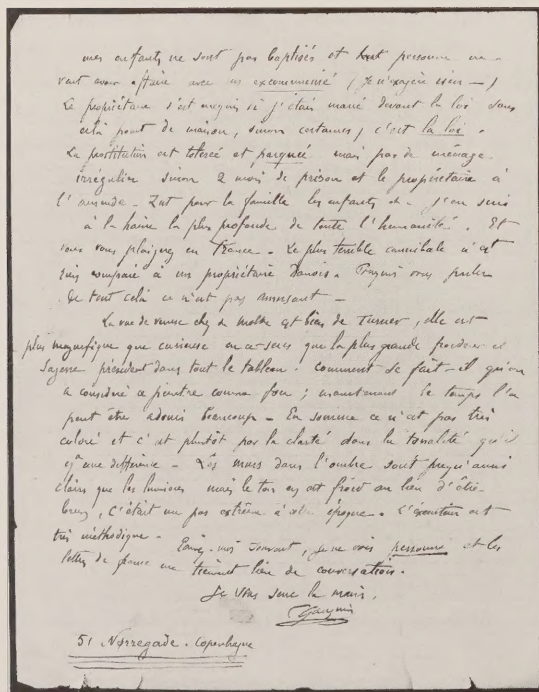 mes enfants ne sont pas baptisés et personne ne
veut avoir affaire avec un excommunié (je n'exagère rien —)
Le propriétaire s'est enquis si j'étais marié devant la loi sans
cela point de maison, c'est la loi.
La prostitution est tolérée et parquée mais pas de ménage
irrégulier sinon 2 mois de prison et le propriétaire à
l'amende. Zut pour la famille les enfants etc. J'en suis
à la haine la plus profonde de toute l'humanité. Et
vous vous plaignez en France. Le plus terrible cannibale n'est
rien comparé à un propriétaire Danois. Pourquoi vous parler
de tout celà ce n'est pas amusant —
La vue de Venise chez de Moltke est bien de Turner, elle est
plus magnifique que curieuse en ce sens que la plus grande froideur et
sagesse président dans tout le tableau. Comment se fait-il qu'on
a considéré ce peintre comme fou ; maintenant le temps l'a
peut être adouci beaucoup — En somme ce n'est pas très
coloré et c'est plutôt par la clarté dans la tonalité qu'il
y a une différence — Les murs dans l'ombre sont presqu'aussi
clairs que les lumières mais le ton en est froid au lieu d'être
brun, c'était un pas extrême à cette époque. L'exécution est
très méthodique — Écrivez-moi souvent, je ne vois personne et les
lettres de france me tiennent lieu de conversation.
Je vous serre la main.
PGauguin
51 Norregade. Copenhague